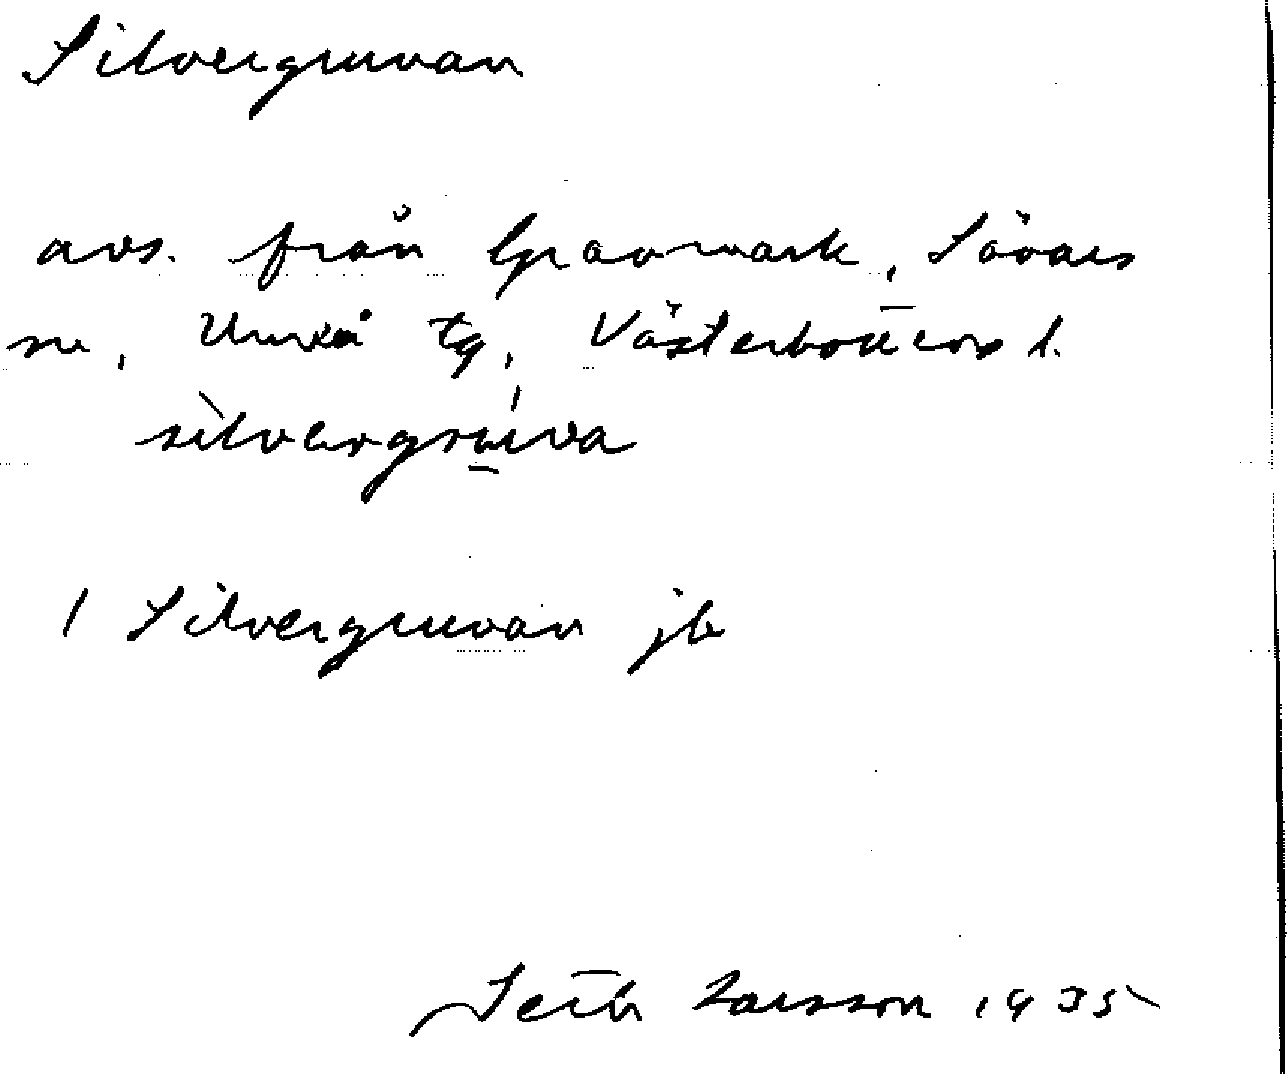 Silvergruvan
avs. från Gravmark, Sävars
sn, Umeå tg, Västerbottens l.
sìlvergrúva
1 Silvergruvan jb
Seth Larsson 1935